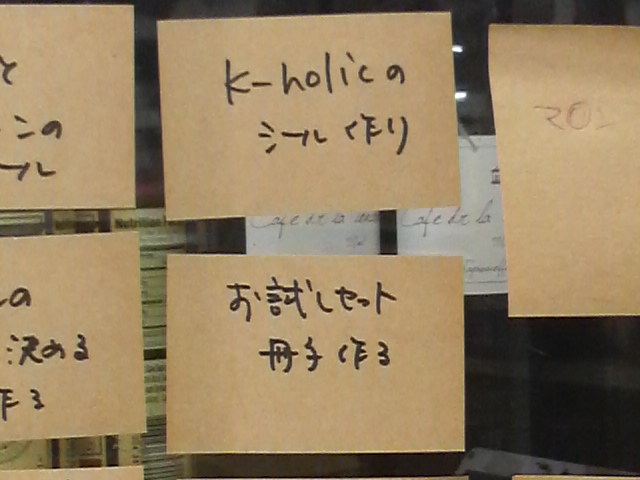 と
ンの
ール
K-holicの
シール作り
の
決める
作る
お試しセット
冊子作る
Café de la
Café de la
Nutrition